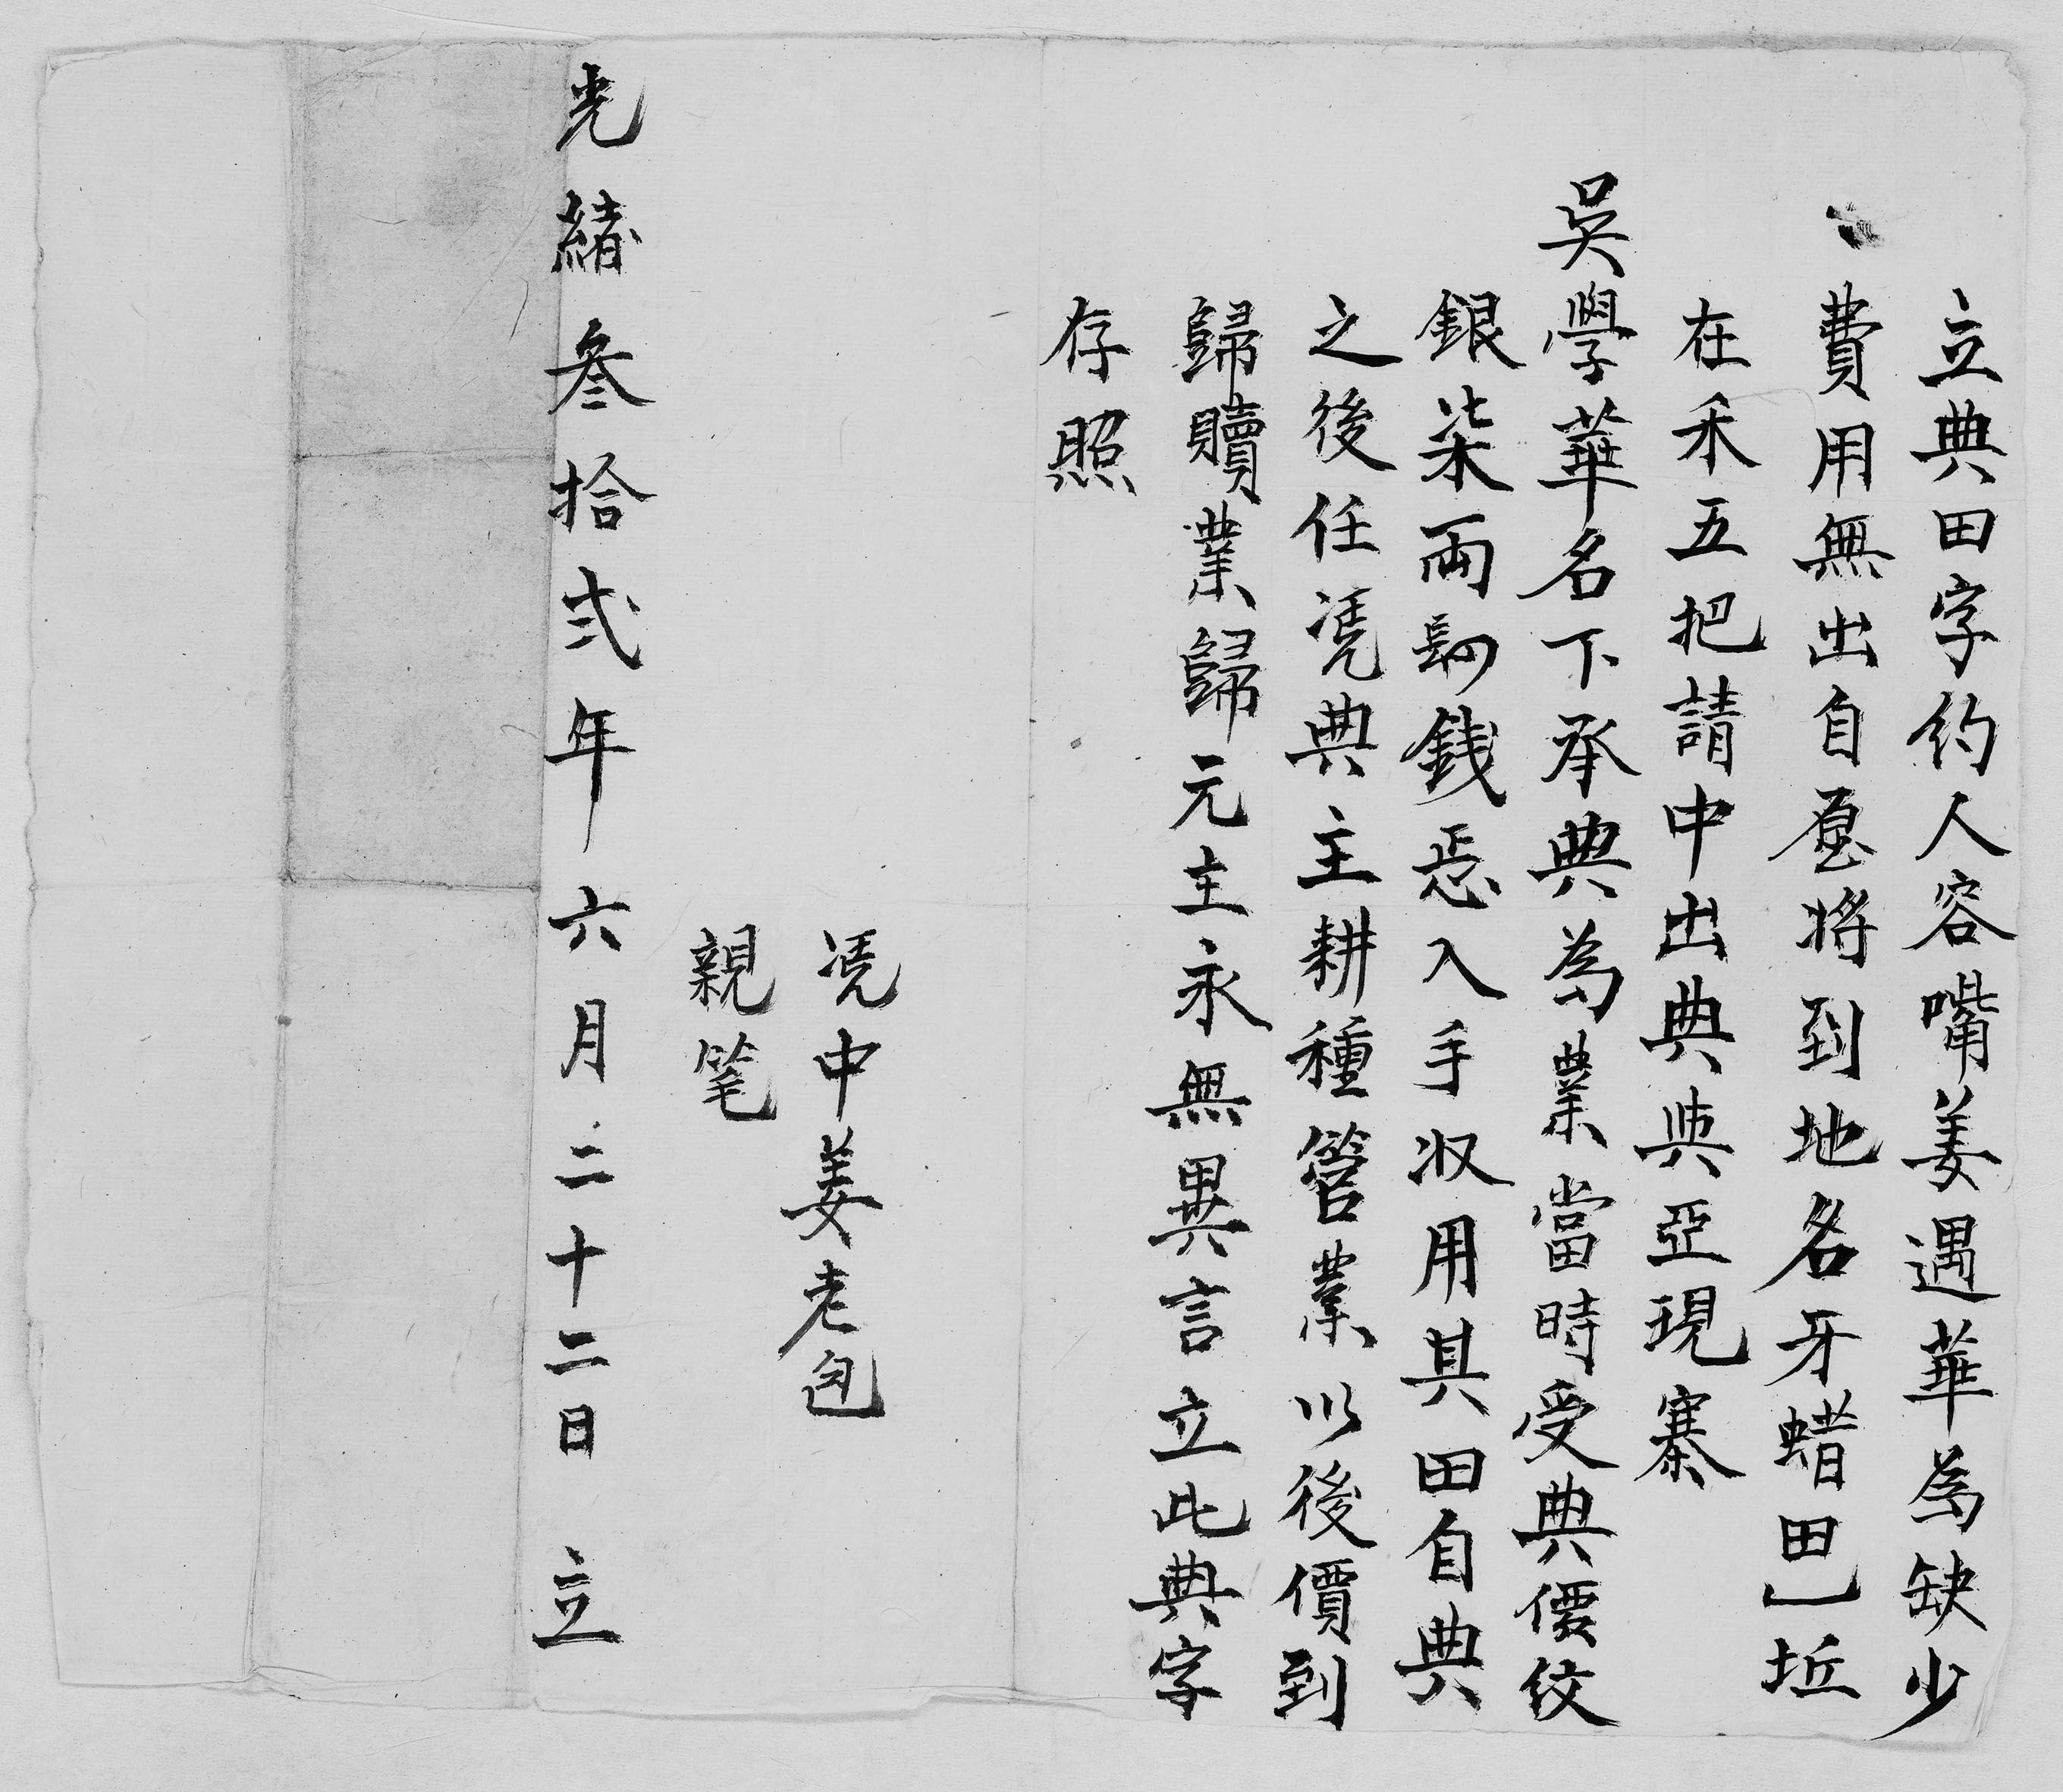 立典田字約人容嘴姜遇華為缺少
費用無出自愿将到地名牙蜡田乚坵
在禾五把請中出典典亞現寨
吳學華名下承典為業當時受典價佼
銀柒両錢忢入手収用其田自典
之後任凴典主耕種管業以後價到
歸贖業歸元主永無異言立此典字
存照
凴中姜老包
親笔
光緒叁拾弍年六月二十二日立